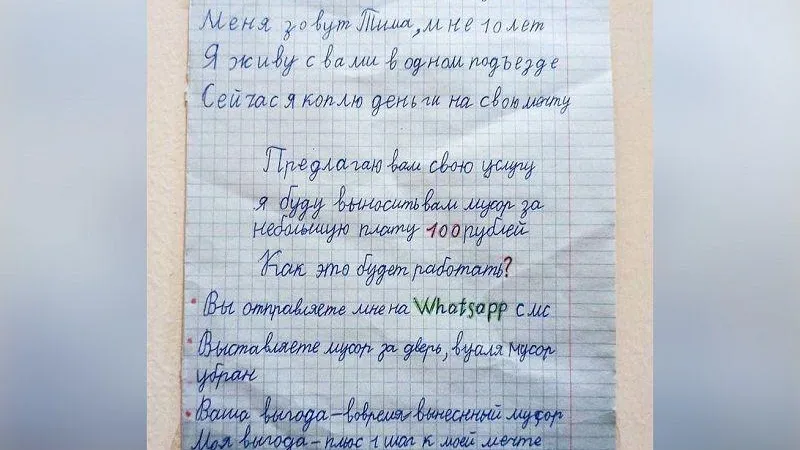 Меня зовут Тима, мне 10 лет
Я живу с вами в одном подъезде
Сейчас я коплю деньги на свою мечту
Предлагаю вам свою услугу
я буду выносить вам мусор за
небольшую плату 100 рублей
Как это будет работать?
• Вы отправляете мне на Whatsapp смс
• Выставляете мусор за дверь, вуаля мусор
убран
• Ваша выгода – вовремя вынеснный мусор
Моя выгода – плюс 1 шаг к моей мечте